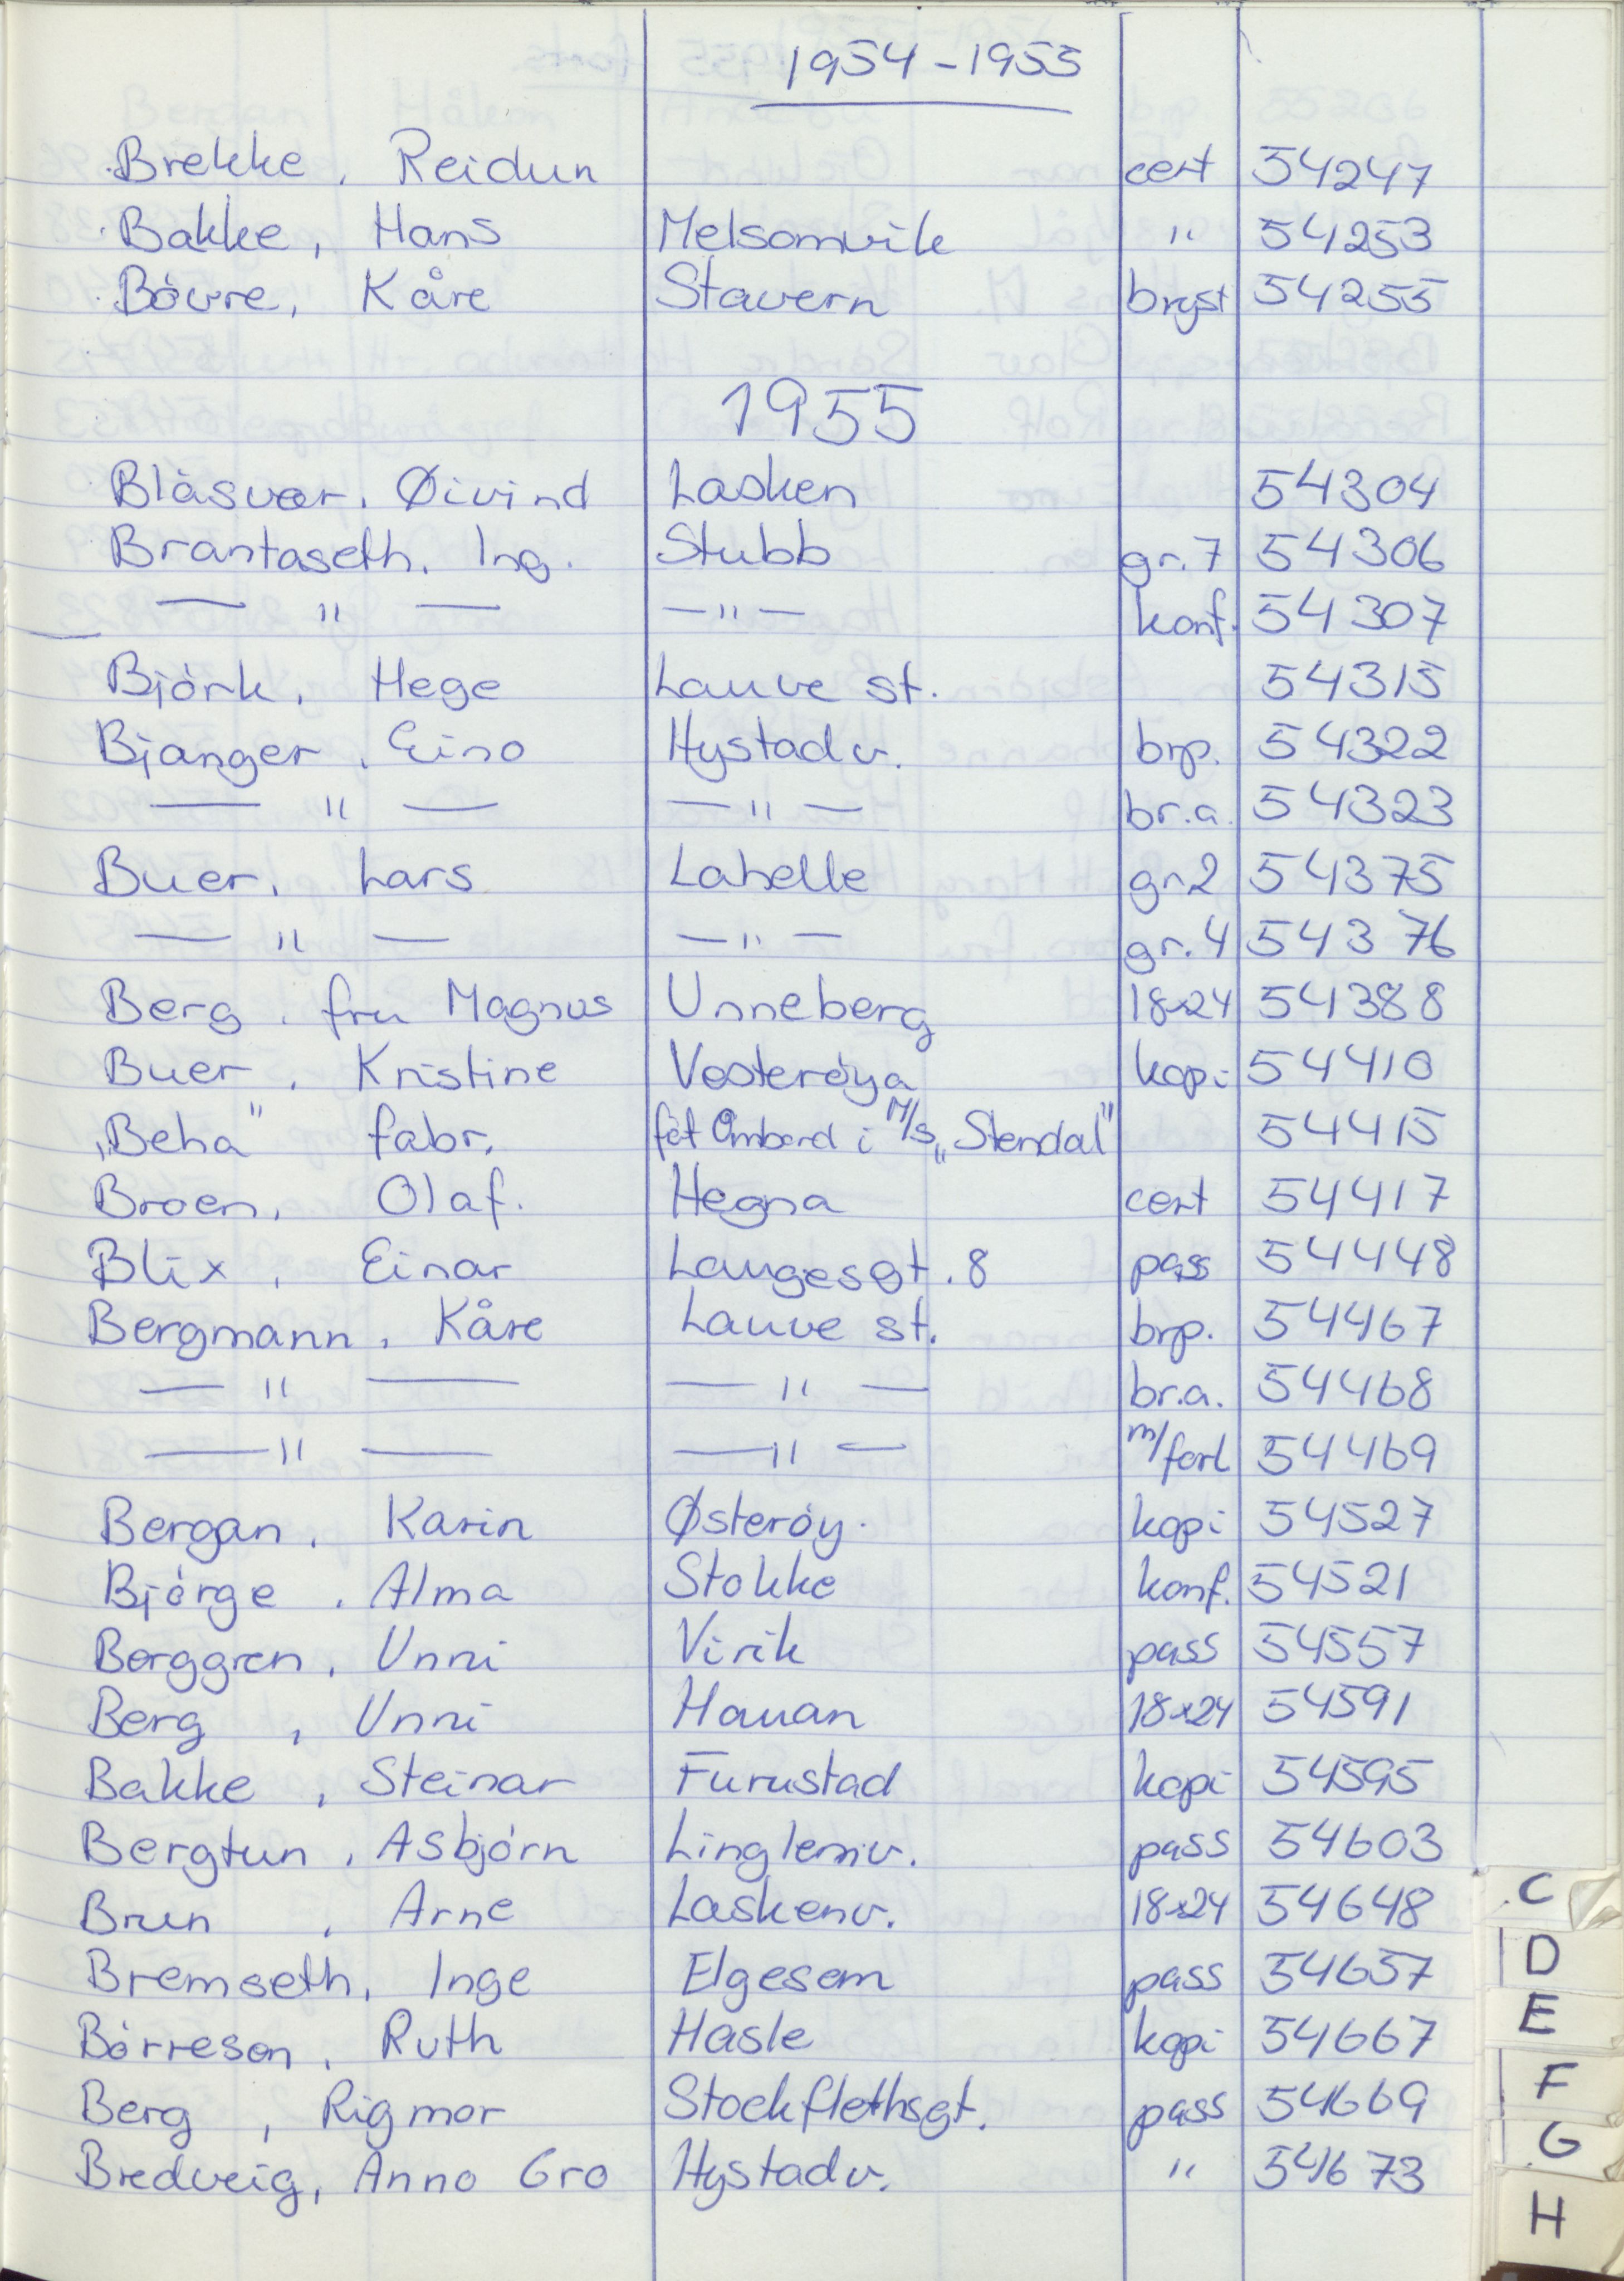 1954 - 1955
Brekke, Reidun cert 54247
Bakke, Hans Melsomvik " 54253
Bóvre, Kåre Stavern bryst 54255
1955
Blåsvær, Øivind Lasken 54304
Brantaseth, Ing. Stubb gr. 7 54306
— " — — " — konf. 54307
Bjórk, Hege Lauve st. 54315
Bjanger, Eino Hystadv. brp. 54322
— " — — " — br.a. 54323
Buer, Lars Lahelle gr.2 54375
— " — — " — gr. 4 54376
Berg, fru Magnus Unneberg 18x24 54388
Buer, Kristine Vesteróya kopi 54410
„Beha" fabr. föt Ombord i M/S „Stendal" 54415
Broen, Olaf. Hegna cert 54417
Blix, Einar Laugesgt. 8 pass 54448
Bergmann, Kåre Lauve st. brp. 54467
— " — — " — br.a. 54468
— " — — " — m/forl 54469
Bergan, Karin Østeróy. kopi 54527
Bjórge, Alma Stokke konf. 54521
Borggren, Unni Virik pass 54557
Berg, Unni Hauan 18x24 54591
Bakke, Steinar Furustad kopi 54595
Bergtun, Asbjórn Linglemv. pass 54603
Brun, Arne Laskenv. 18x24 54648
Bremseth, Inge Elgesem pass 54657
Bórreson, Ruth Hasle kopi 54667
Berg, Rigmor Stockflethsgt. pass 54669
Bredveig, Anno Gro Hystadv. " 54673
C
D
E
F
G
H